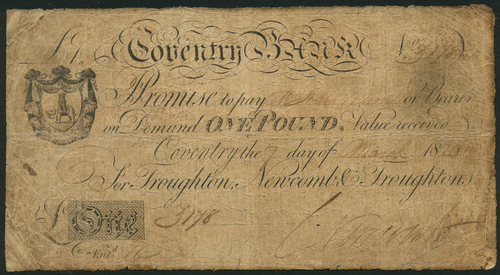 £1, Coventry BANK
Promise to pay or Bearer
on Demand ONE POUND, Value received
Coventry the 7 day of March 18
For Troughton, Newcomb & Troughton,
£ One 3178
Entd